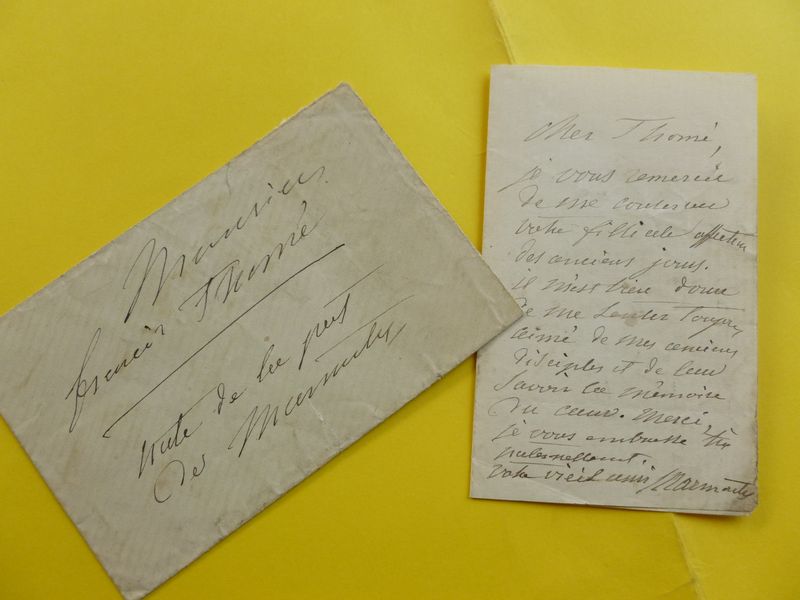 Monsieur
francis Thomé
note de la part
de Marmontel
Cher Thomé,
je vous remercie
de me conserver
votre filliale affection
des anciens jours.
il m'est bien doux
de me sentir toujours
aimé de mes anciens
disciples et de leur
savoir la mémoire
du cœur. Merci,
je vous embrasse très
paternellement.
votre vieil ami Marmontel